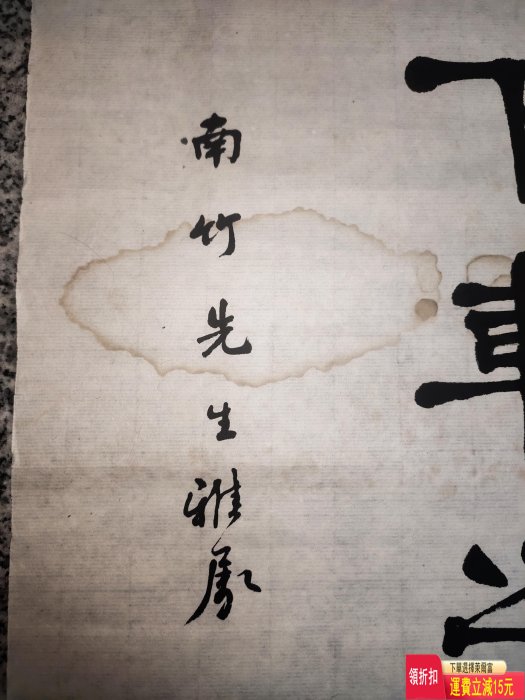 喃竹先生雅属
領折扣
下單選擇萊爾富
運費立減15元